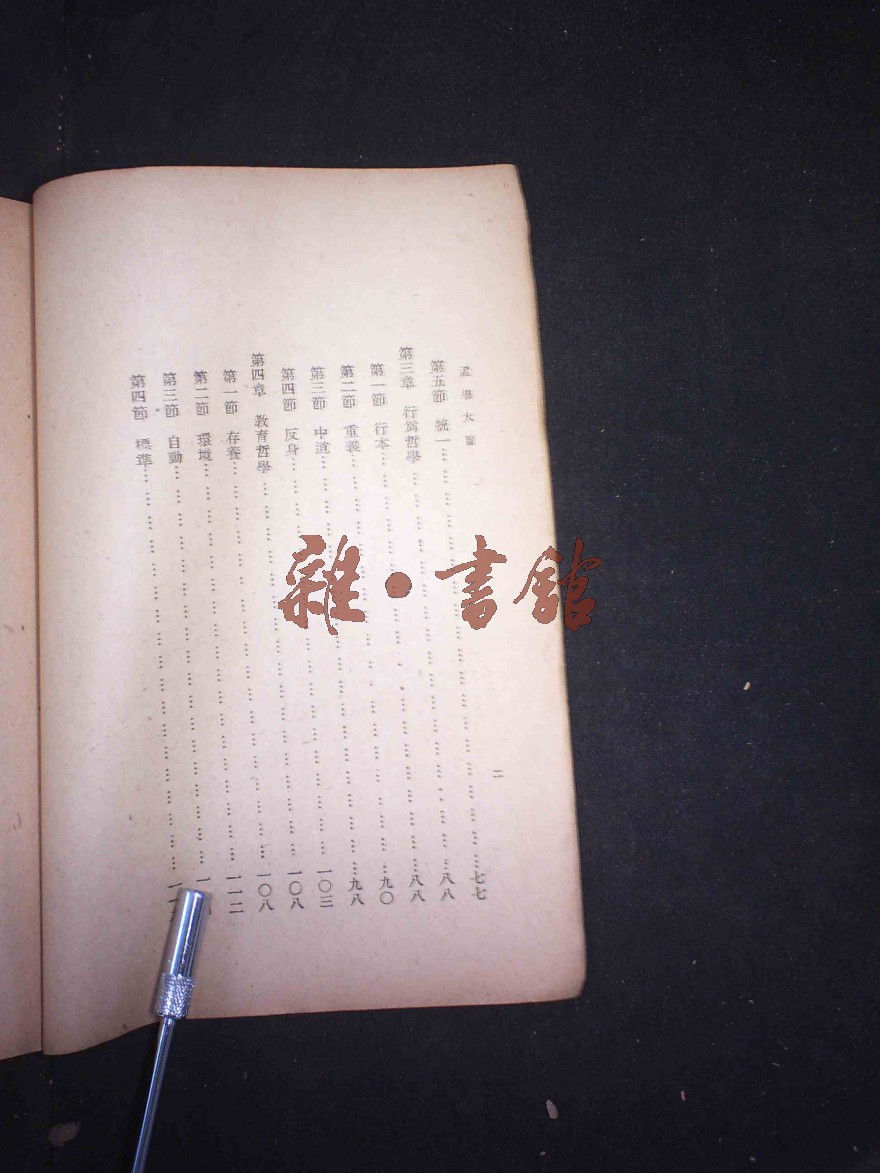 孟學大旨
二
第五節 統一……七七
第三章 行爲哲學……八八
第一節 行本……八八
第二節 重義……九〇
第三節 中道……九八
第四節 反身……一〇三
第四章 教育哲學……一〇八
第一節 存養……一〇八
第二節 環境……一一二
第三節 自動……
第四節 標準……
雜·書館